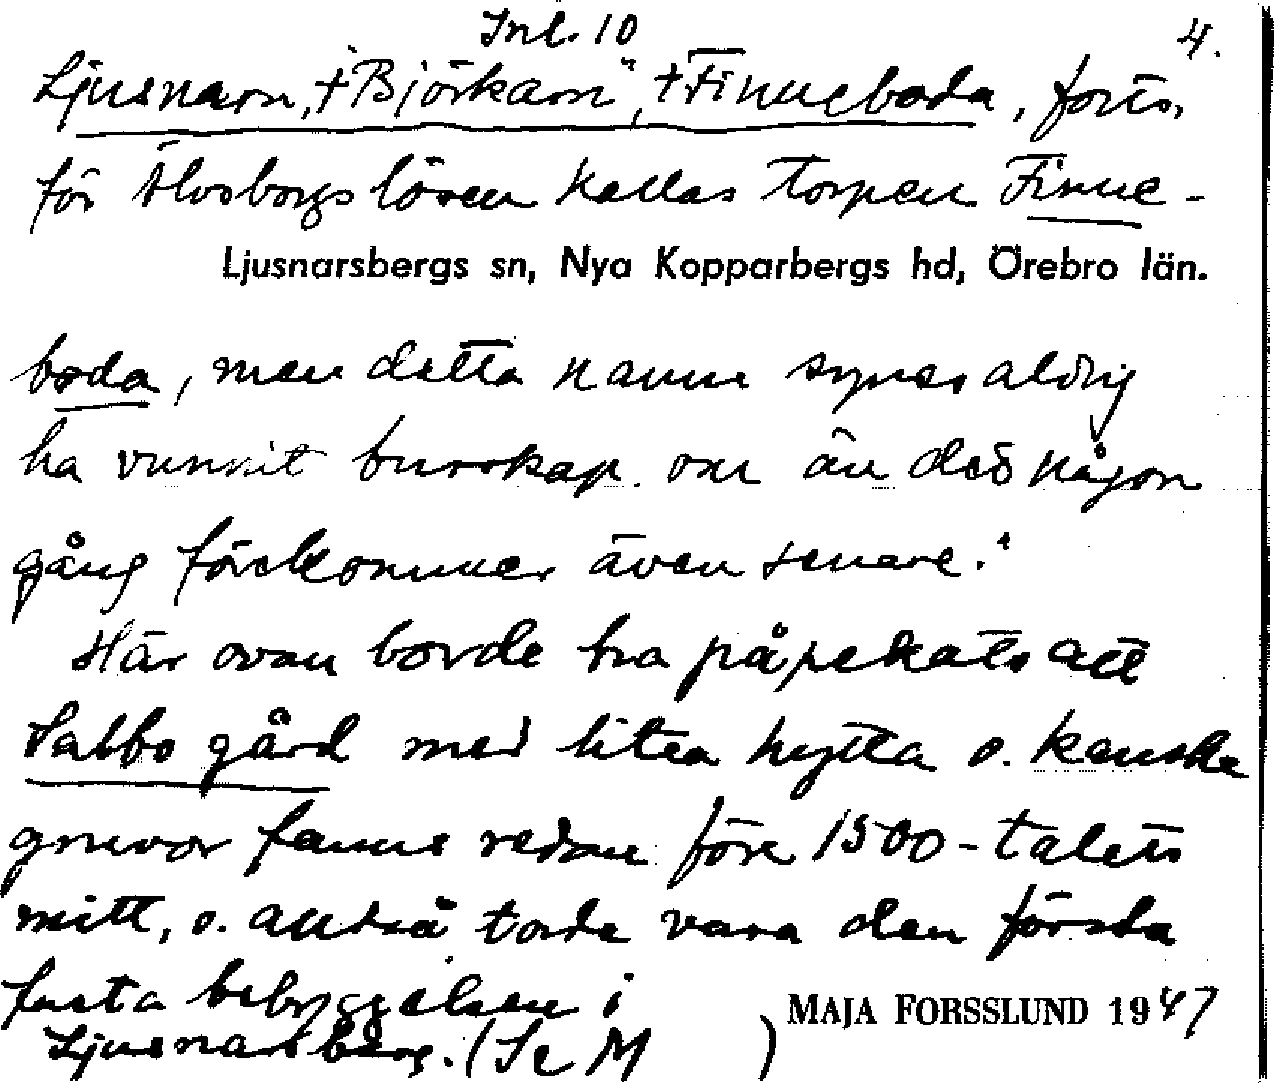 Inl. 10
4.
Ljusnarn, + "Björkarn", + Finneboda, forts.
för Älvsborgs lösen kallas torpen Finne-
Ljusnarsbergs sn, Nya Kopparbergs hd, Örebro län.
boda, men detta namn synes aldrig
ha vunnit burskap om än det någon
gång förekommer även senare."
Här ovan borde ha påpekats att
Sabbo gård med liten hytta o. kanske
gruvor fanns redan före 1500-talets
mitt, o. alltså torde vara den första
fasta bebyggelsen i
Ljusnarsberg. (Se M )
MAJA FORSSLUND 1947